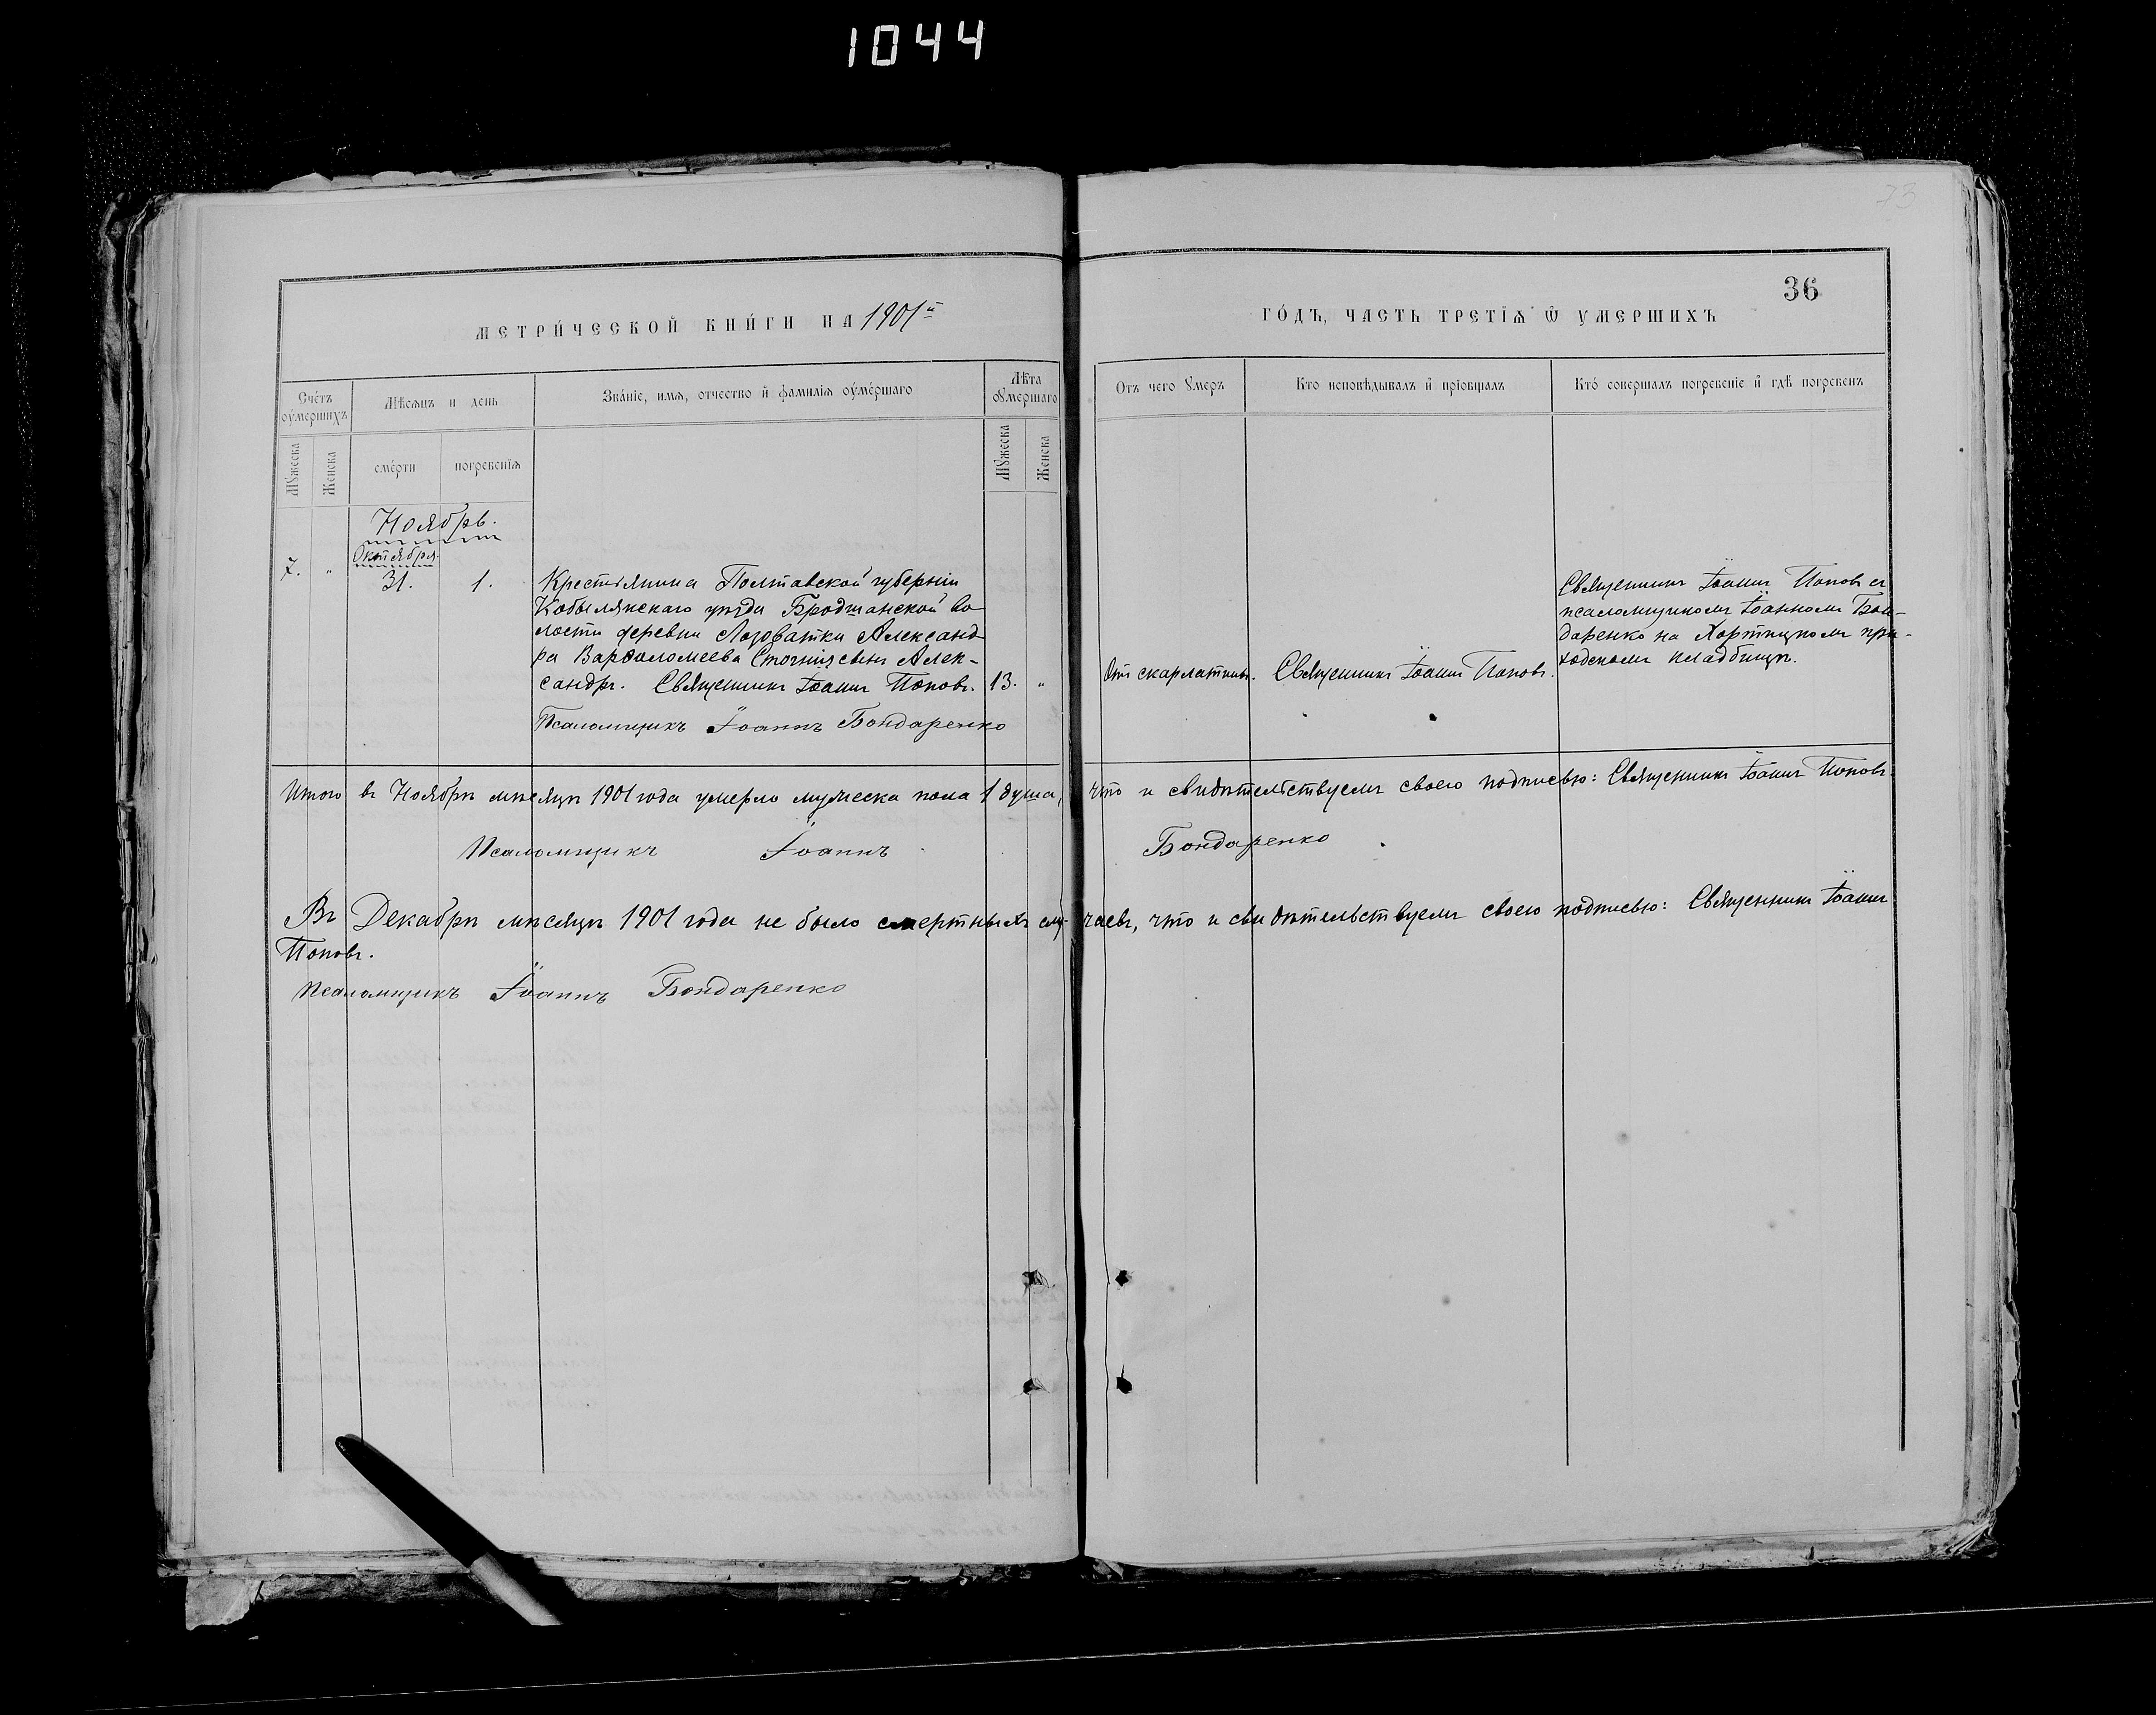 1044
73
36
МЕТРИ́ЧЕСКОЙ КНИ́ГИ НА 1901й
ГО́ДЪ, ЧАСТЬ ТРЕТІѦ Ѡ УМЕРШИХЪ
Сче́тъ оу҆ме́ршихъ
Мѣсяцъ и день
Зва́ніе, имя, отчество и҆ фамилія оу҆ме́ршаго
Лѣта оумершаго
Мужеска
Женска
сме́рти
погребенія
Мужеска
Женска
Отъ чего умеръ
Кто исповѣдывалъ и҆ пріобщалъ
Кто́ совершалъ погребеніе и҆ гдѣ погребенъ
Ноябрь.
Октября
7. „ 31. 1.
Крестьянина Полтавской губерніи
Кобылякскаго уѣзда Бродщанской во-
лости деревни Лозоватки Александ-
ра Варѳоломеева сынъ Алек-
сандръ. Священникъ Іоаннъ Поповъ. 13. „
Псаломщикъ Іоаннъ Бондаренко
Отъ скарлатины. Священникъ Іоаннъ Поповъ.
Священникъ Іоаннъ Поповъ съ
псаломщикомъ Іоанномъ Бон-
даренко на Хортицкомъ при-
ходскомъ кладбищѣ.
Итого въ Ноябрѣ мѣсяцѣ 1901 года умерло мужеска пола 1 душа, что и свидѣтельствуемъ своею подписью: Священникъ Іоаннъ Поповъ.
Псаломщикъ Іоаннъ Бондаренко
Въ Декабрѣ мѣсяцѣ 1901 года не было смертныхъ слу- чаевъ, что и свидѣтельствуемъ своею подписью: Священникъ Іоаннъ
Поповъ.
Псаломщикъ Іоаннъ Бондаренко